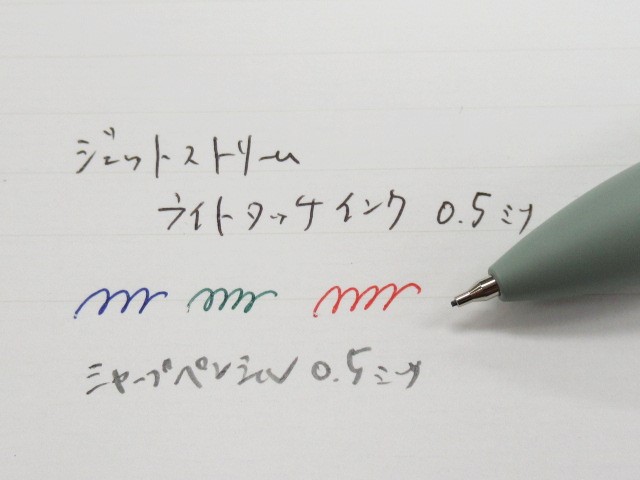 ジェットストリーム
ライトタッチインク 0.5ミリ
シャープペンシル 0.5ミリ